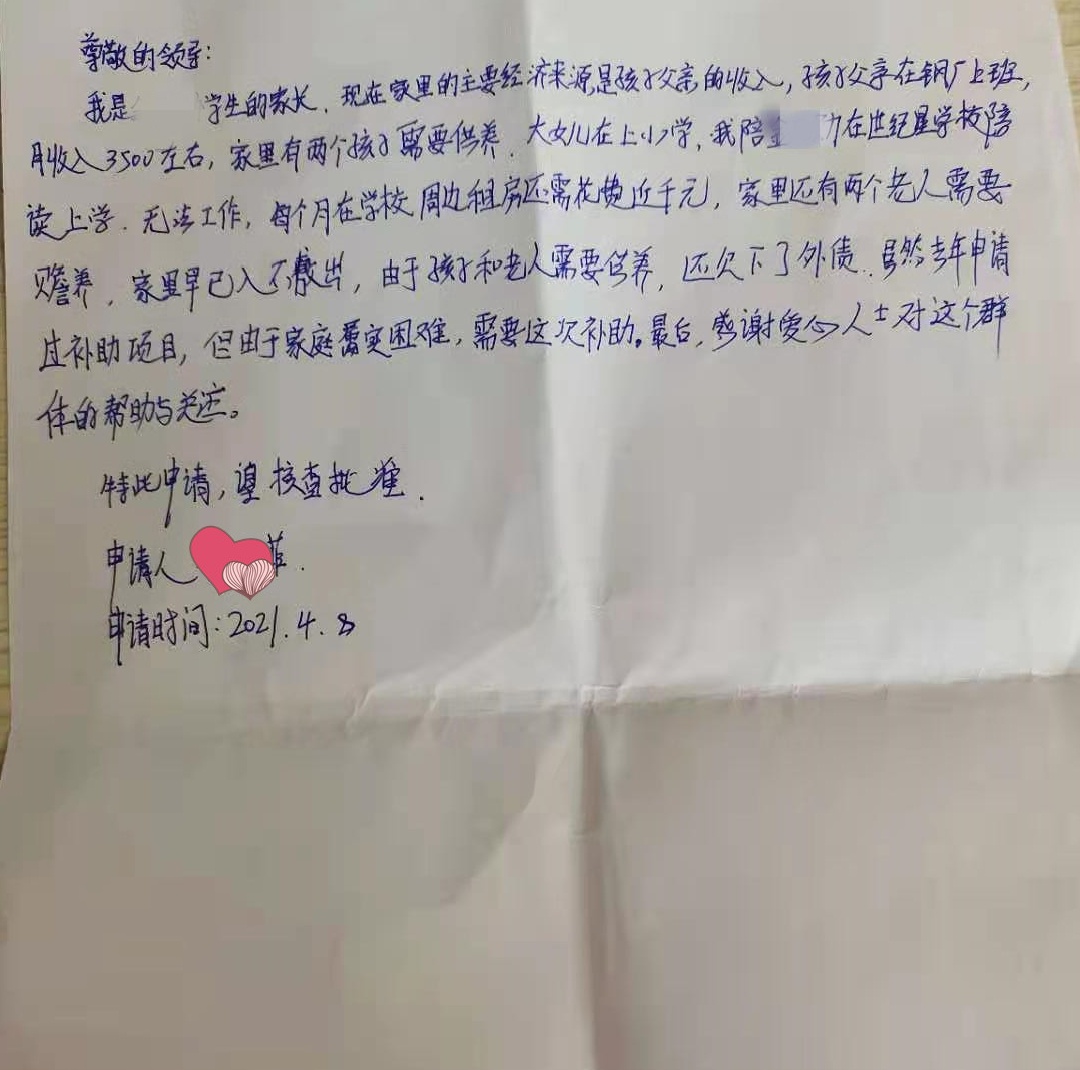 尊敬的领导:
我是 学生的家长.现在家里的主要经济来源是孩子父亲的收入,孩子父亲在钢厂上班,
月收入3500左右,家里有两个孩子需要供养.大女儿在上小学,我陪 在世纪星学校陪
读上学.无法工作,每个月在学校周边租房还需花费近千元,家里还有两个老人需要
赡养,家里早已入不敷出,由于孩子和老人需要供养,还欠下了外债.虽然去年申请
过补助项目,但由于家庭确实困难,需要这次补助。最后,感谢爱心人士对这个群
体的帮助与关注。
特此申请,望核查批准.
申请人 菲.
申请时间:2021.4.8